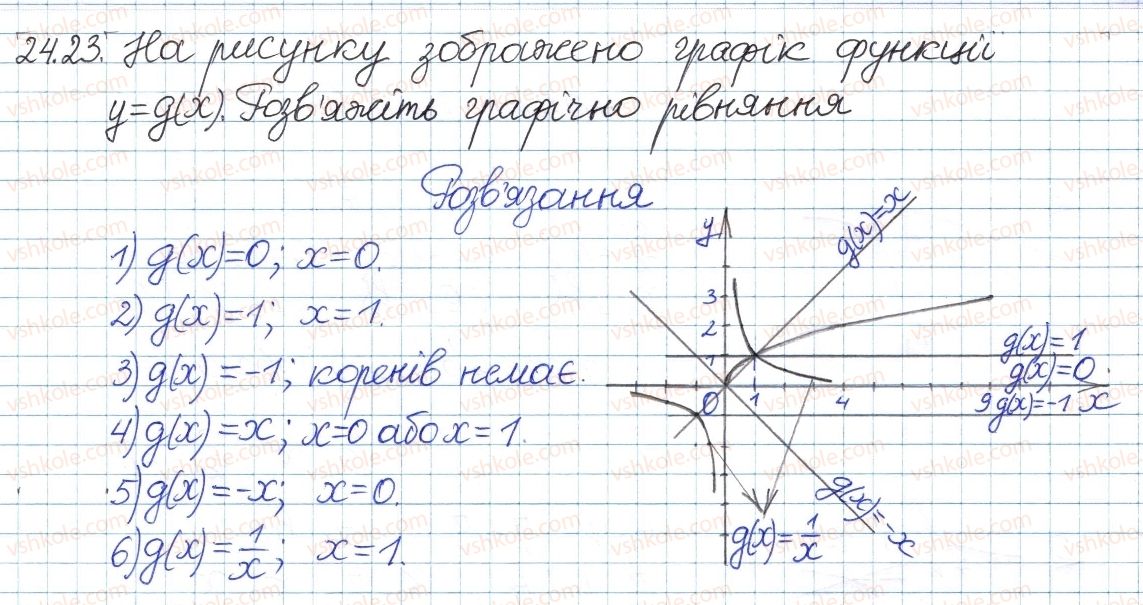 24.23. На рисунку зображено графік функції
y=g(x). Розв'яжіть графічно рівняння
Розв'язання
1) g(x)=0; x=0.
2) g(x)=1; x=1.
3) g(x)=-1; коренів немає.
4) g(x)=x; x=0 або x=1.
5) g(x)=-x; x=0.
6) g(x)=1/x; x=1.
y
g(x)=x
3
2
1
g(x)=1
g(x)=0
0 1 4 9 g(x)=-1 x
g(x)=-x
g(x)=1/x
vshkole.com